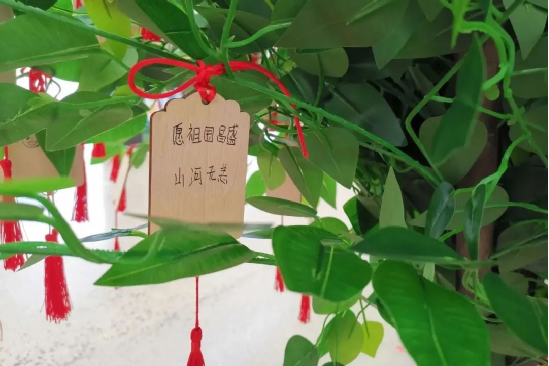 愿祖国昌盛
山河无恙